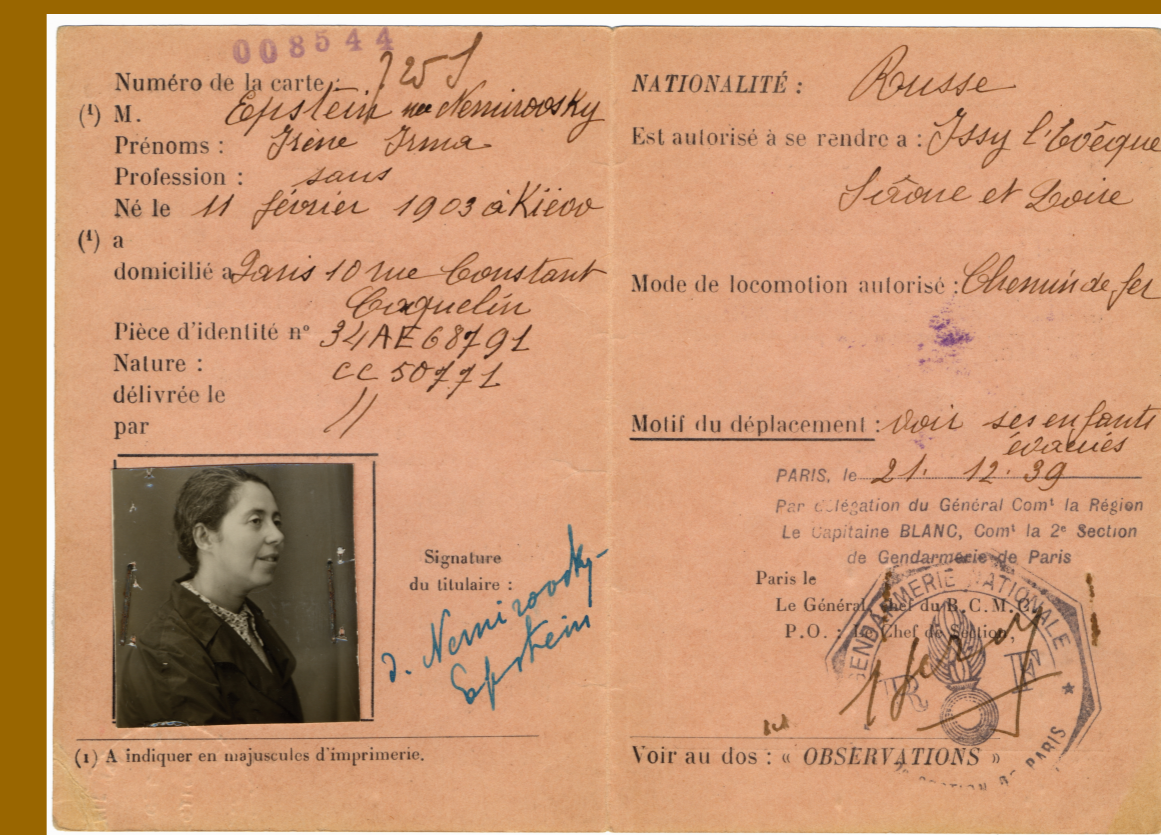 008544
Numéro de la carte : 725 S
(1) M. Epstein née Nemirovsky
Prénoms : Irène Irma
Profession : sans
Né le 11 février 1903 à Kiéov
(1) a
domicilié a Paris 10 rue Constant
Coquelin
Pièce d'identité nº 34AE68791
Nature : CC 50771
délivrée le
par //
Signature
du titulaire :
I. Nemirovsky-
Epstein
(1) A indiquer en majuscules d'imprimerie.
NATIONALITÉ : Russe
Est autorisé à se rendre a : Issy l'Evêque
Saône et Loire
Mode de locomotion autorisé : Chemin de fer
Motif du déplacement : Voir ses enfants
évacués
PARIS, le 21. 12. 39
Par délégation du Général Comt la Région
Le Capitaine BLANC, Comt la 2e Section
de Gendarmerie de Paris
Paris le
Le Général, Chef du R.C.M.G.
P.O. : Le Chef de Section,
GENDARMERIE NATIONALE
R F
SECTION DE PARIS
Voir au dos : « OBSERVATIONS »